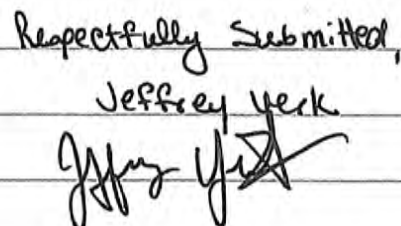 Respectfully Submitted,
Jeffrey Yerk
Jeffrey